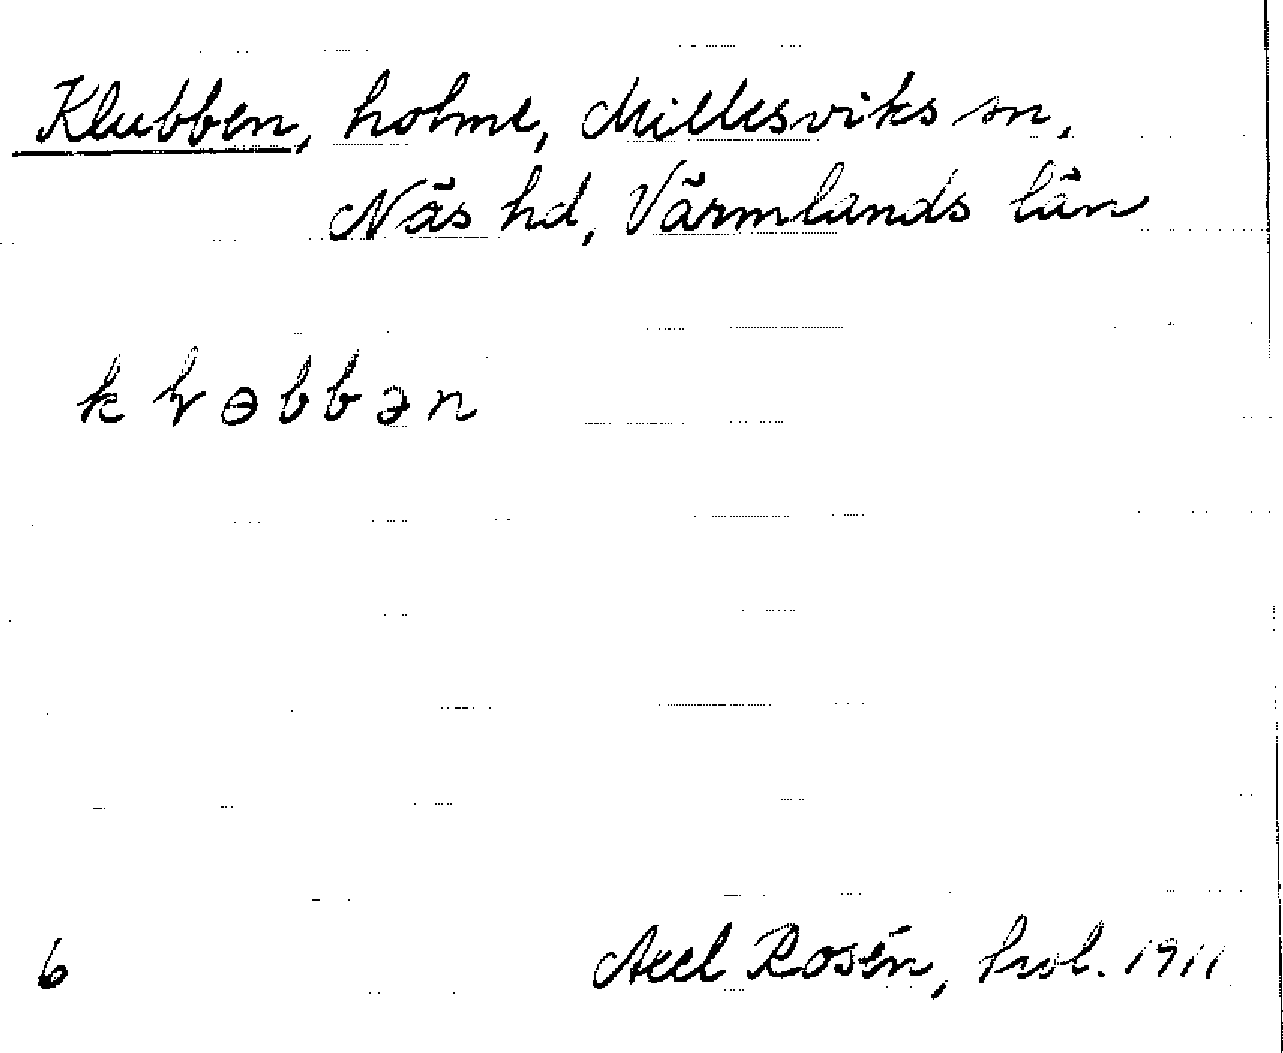 Klubben, holme, Millesviks sn,
Näs hd, Värmlands län
kɽɵbbən
6 Axel Rosén, prob. 1911